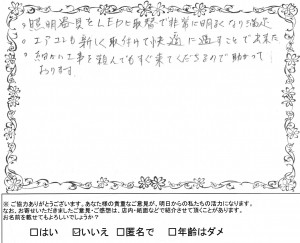 ・照明器具をLEDと取替で非常に明るくなり満足
・エアコンも新しく取付けて快適に過すことで出来た
・細かい工事を頼んでもすぐ来てくださるので助かって
おります。
※ご協力ありがとうございます。あなた様の貴重なご意見が、明日からの私たちの活力になります。
なお、お寄せいただきましたご意見・ご感想は、店内・紙面などで紹介させて頂くことがあります。
お名前を載せてもよろしいでしょうか?
□はい ☑いいえ □匿名で □年齢はダメ